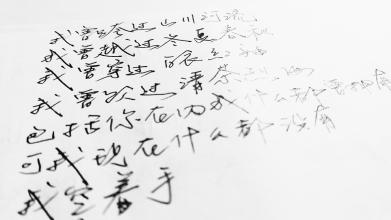 我曾跨过山川河流
我曾越过冬夏春秋
我曾穿过
我曾吹过清
包括你在内我什么都
可我现在什么都没有
我空着手